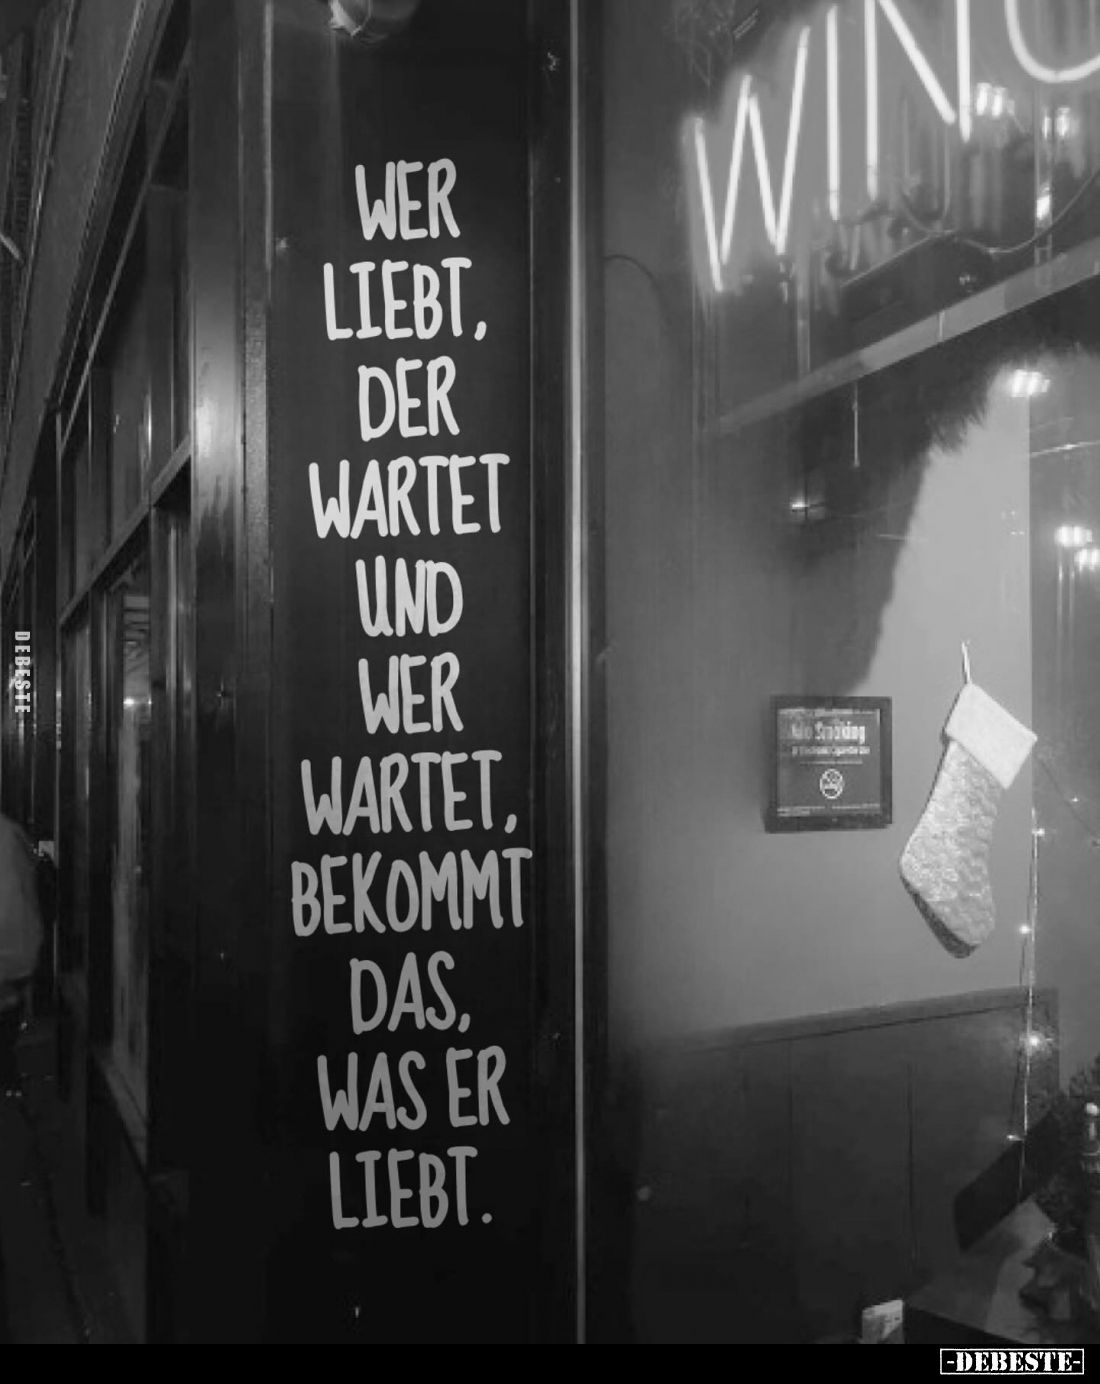 WER
LIEBT,
DER
WARTET
UND
WER
WARTET,
BEKOMMT
DAS,
WAS ER
LIEBT.
No Smoking
DEBESTE
-DEBESTE-